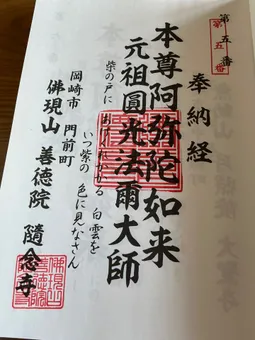 第五番
第五番
奉納経
本尊阿弥陀如来
元祖圓光法爾大師
柴の戸に あけくれかかる 白雲を
いつ紫の 色に見なさん
岡崎市 門前町
佛現山 善徳院 隨念寺